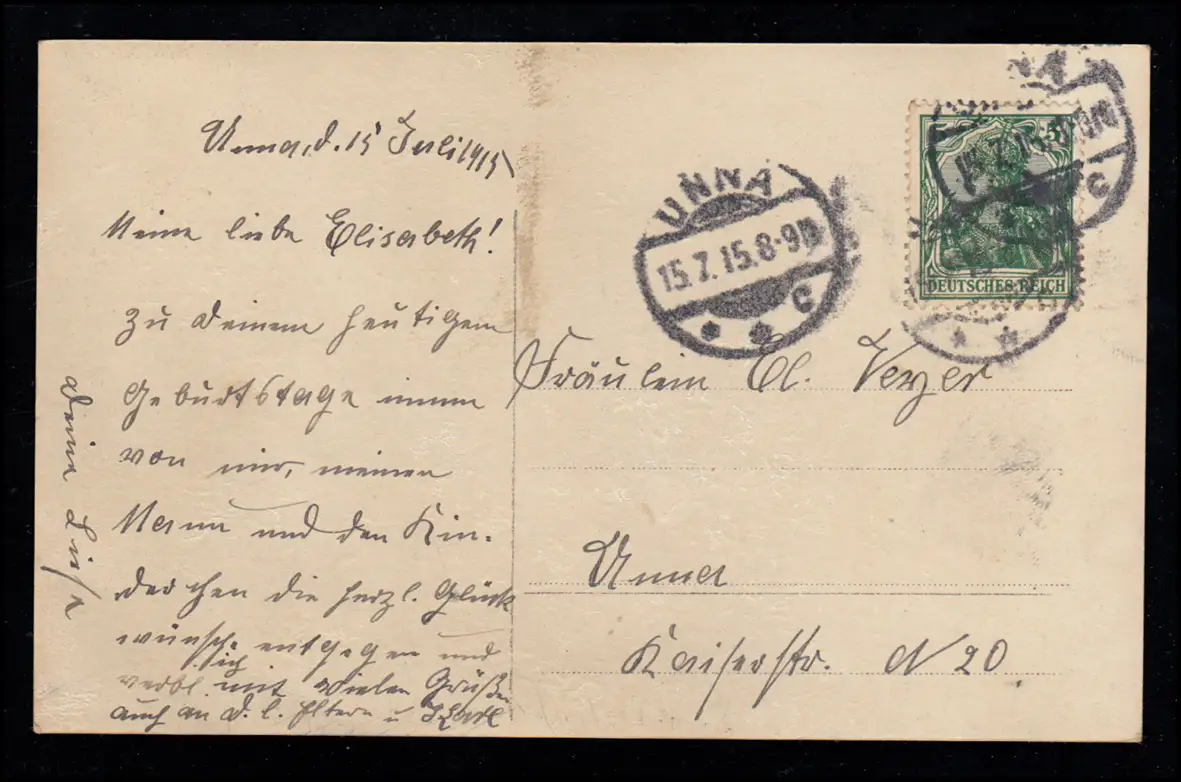 Unna, d. 15 Juli 1915
Meine liebe Elisabeth!
Zu Deinem heutigen
Geburtstage nimm
von mir, meinem
Mann und den Kin-
derchen die herzl. Glück
wünsche entgegen und
verbl. ich mit vielen Grüßen
auch an d. l. Eltern u
Deine Liese
UNNA
15.7.15.8-9N
* * c
UNNA
15.7.15.8-9N
c
5
DEUTSCHES REICH
* *
Fräulein El. Veyer
Unna
Kaiserstr. N 20